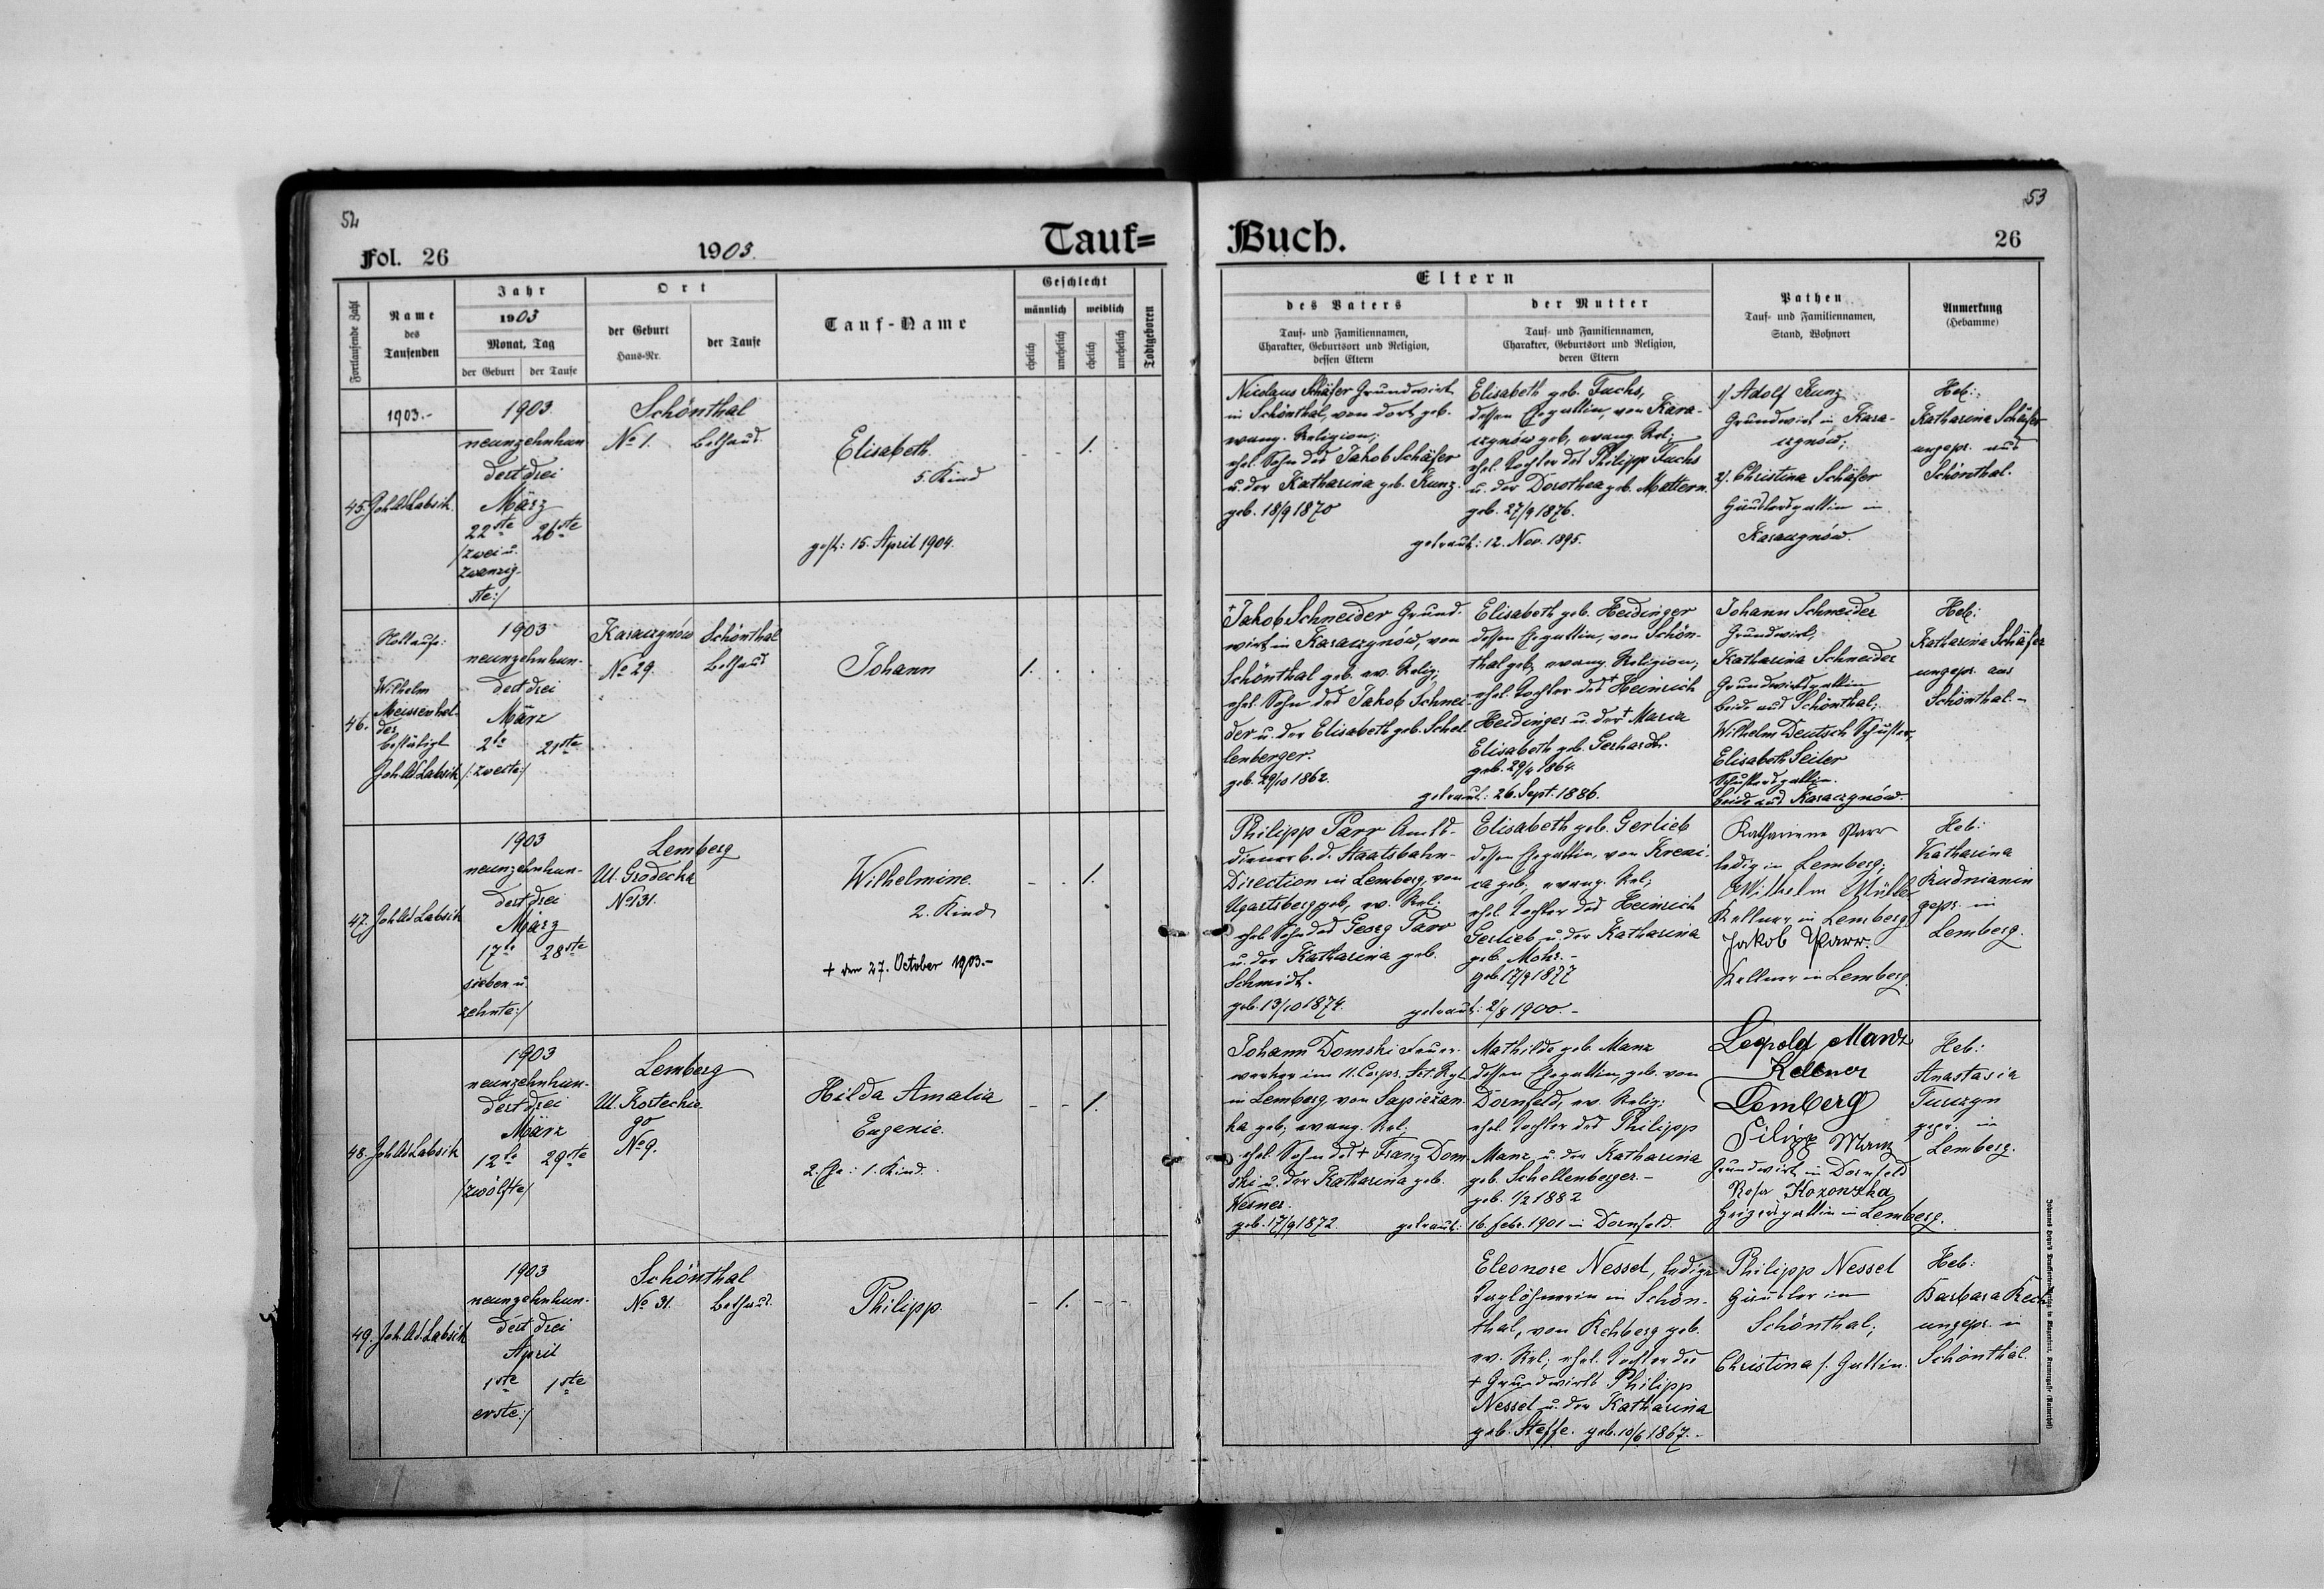 52
Fol. 26
1903.
Tauf=
Fortlaufende Zahl
Name
des
Taufenden
Jahr
1903
Monat, Tag
der Geburt
der Taufe
Ort
der Geburt
Haus-Nr.
der Taufe
Tauf-Name
Geschlecht
männlich
weiblich
ehelich
unehelich
ehelich
unehelich
Todtgeboren
1903.-
45. Joh. Ad. Labsik.
1903
neunzehnhun
dert drei
März
22ste 26ste
/zwei u.
zwanzig-
ste:/
Schönthal
No 1. Bethaus
Elisabeth.
5. Kind
gest: 15. April 1904.
- - 1. -
46.
Nottaufe:
Wilhelm
Meissenhel-
der
bestätigt
Joh. Ad. Labsik
1903
neunzehnhun-
dert drei
März
2te 21ste
/:zweite:/
Karaczynów Schönthal
No 29. Bethaus
Johann
1. . . .
47. Joh. Ad. Labsik
1903
neunzehnhun-
dert drei
März
17te 28ste
sieben u.
zehnte:/
Lemberg
Ul. Grodecka
No 131.
Wilhelmine.
2. Kind
+ den 27. October 1903.-
- - 1.
48. Joh. Ad. Labsik
1903
neunzehnhun-
dert drei
März
12te 29ste
/zwölfte/
Lemberg
Ul. Korteckie-
go
No 9.
Hilda Amalia
Eugenie.
2. Ehe: 1. Kind.
- - 1.
49. Joh. Ad. Labsik
1903
neunzehnhun-
dert drei
April
1ste 1ste
erste:/
Schönthal
No 31. Bethaus.
Philipp.
- 1. - -
53
Buch.
26
Eltern
des Vaters
Tauf- und Familiennamen,
Charakter, Geburtsort und Religion,
dessen Eltern
der Mutter
Tauf- und Familiennamen,
Charakter, Geburtsort und Religion,
deren Eltern
Pathen
Tauf- und Familiennamen,
Stand, Wohnort
Anmerkung
(Hebamme)
Nicolaus Schäfer Grundwirt
in Schönthal, von dort geb.
evang. Religion;
ehel. Sohn des Jakob Schäfer
u. der Katharina geb. Kunz.
geb. 18/9 1870
Elisabeth geb. Fuchs,
dessen Ehegattin, von Kara-
czynów geb, evang. Rel;
ehel. Tochter des Philipp Fuchs
u. der Dorothea geb. Mattern.
geb. 27/9 1876.
getraut: 12. Nov. 1895.
1/ Adolf Kunz
Grundwirt in Kara-
czynów;
2/. Christina Schäfer
Häuslersgattin in
Karaczynów.
Heb:
Katharina Schäfer
ungepr. aus
Schönthal.
+Jakob Schneider Grund-
wirt in Karaczynów, von
Schönthal geb. ev. Relig;
ehel. Sohn des Jakob Schnei
der u. der Elisabeth geb. Schel
lenberger.
geb. 29/10 1862.
Elisabeth geb. Heidinger
dessen Ehegattin, von Schön-
thal geb, evang. Religion,
ehel. Tochter des + Heinrich
Heidinger u. der + Maria
Elisabeth geb. Gerhardt.
geb. 29/4 1864.
getraut: 26. Sept. 1886.
Johann Schneider
Grundwirt,
Katharina Schneider
Grundwirtsgattin
beide aus Schönthal;
Wilhelm Deutsch Schuster,
Elisabeth Seiler
Schustersgattin.
beide aus Karaczynów.
Heb:
Katharina Schäfer
ungepr. aus
Schönthal.-
Philipp Parr Amts-
diener b. d. Staatsbahn-
Direction in Lemberg, von
Ugartsberg geb, ev. Rel;
ehel. Sohn des Georg Parr
u. der Katharina geb.
Schmidt.
geb. 13/10 1874.
Elisabeth geb. Gerlieb
dessen Ehegattin, von Kreni-
ca geb, evang. Rel;
ehel. Tochter des Heinrich
Gerlieb u. der Katharina
geb. Mohr.-
geb. 17/9 1877
getraut: 2/8 1900.-
Katharina Parr
ledig in Lemberg;
Wilhelm Müller
Kellner in Lemberg
Jakob Parr.
Kellner in Lemberg.
Heb:
Katharina
Rudnianin
gepr. in
Lemberg.
Johann Domski Feuer-
werker im 11. Corps. Art. Rgt
in Lemberg von Sapiežan-
ka geb; evang. Rel;
ehel. Sohn des + Franz Dom-
ski u. der Katharina geb.
Wesner.
geb. 17/9 1872
Mathilde geb. Manz
dessen Ehegattin, geb. von
Dornfeld, ev. Relig;
ehel. Tochter des Philipp
Manz u. der Katharina
geb. Schellenberger.-
geb. 1/2 1882
getraut: 16. Febr. 1901 in Dornfeld.
Leopold Manz
Kellner
Lemberg
Filipp Manz
Grundwirt in Dornfeld
Rosa Kozonzka
Heizersgattin in Lemberg.
Heb:
Anastasia
Turczyn
gepr. in
Lemberg.
Eleonore Nessel, ledige
Taglöhnerin in Schön-
thal, von Rehberg geb.
ev. Rel; ehel. Tochter des
+ Grundwirts Philipp
Nessel u. der Katharina
geb. Steffe. geb. 10/6 1867.-
Philipp Nessel
Häusler in
Schönthal;
Christina s. Gattin.
Heb:
Barbara Rech
ungepr. in
Schönthal.